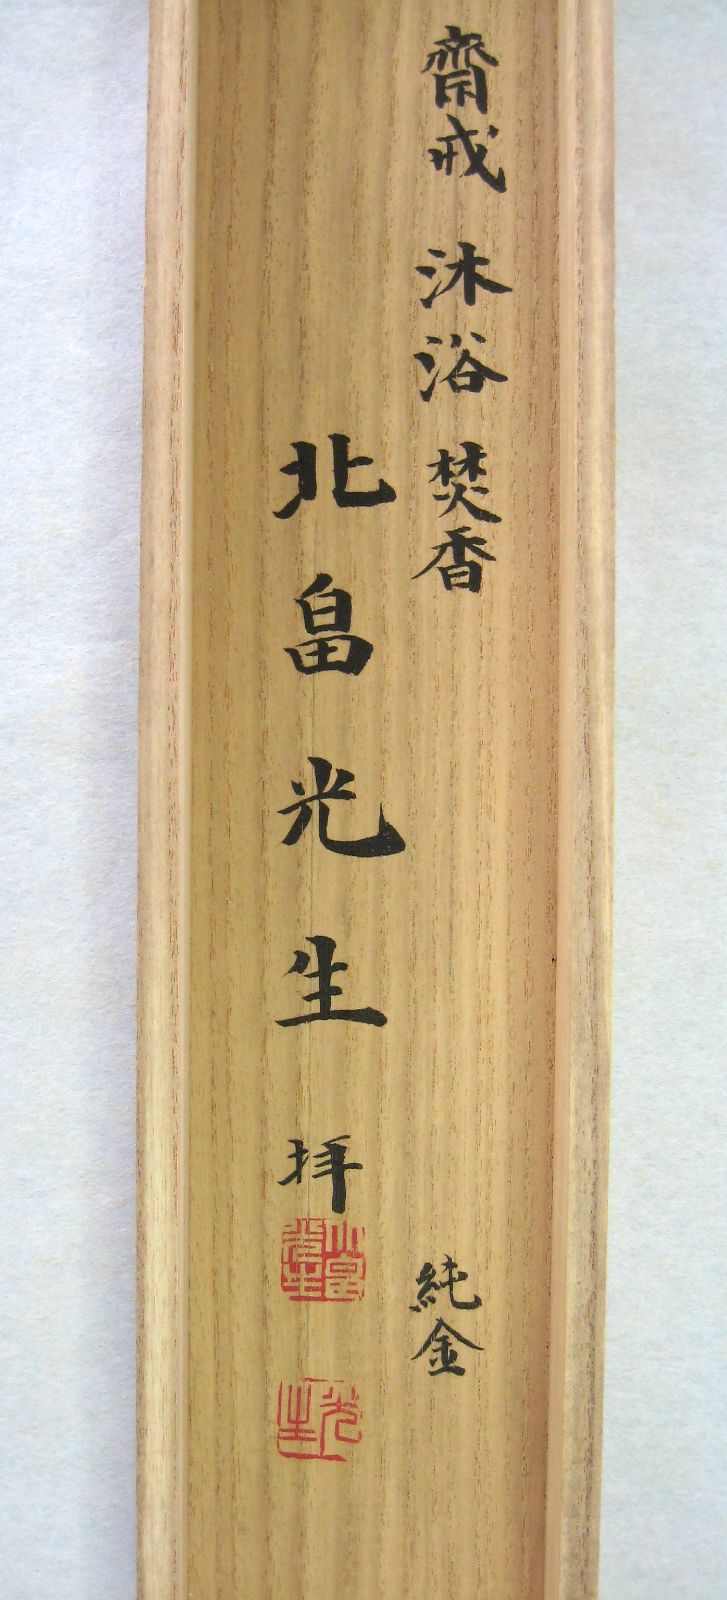 齋戒 沐浴 焚香 純金
北畠光生 拝
光生